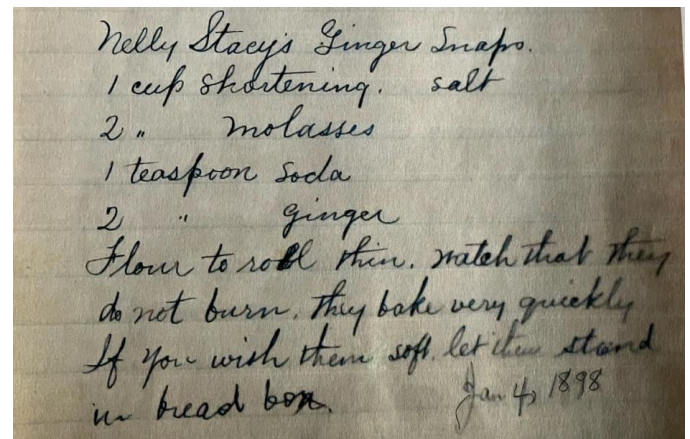 Nelly Stacy's Ginger Snaps.
1 cup shortening. salt
2 " molasses
1 teaspoon soda
2 " ginger
Flour to roll thin. Watch that they
do not burn. They bake very quickly
If you wish them soft. let them stand
in bread box.
Jan 4, 1898